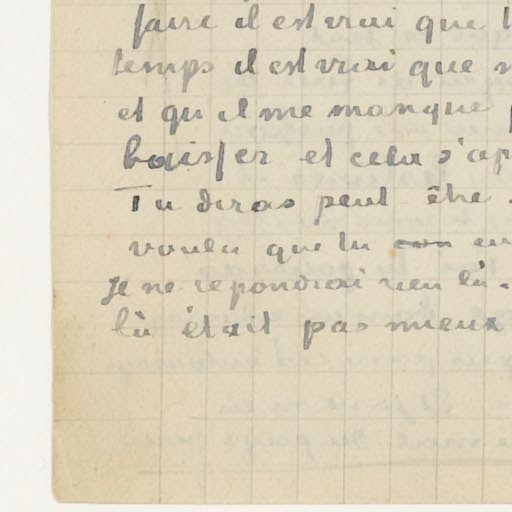 faire il est vrai que
temps il est vrai que
et qu il me manque
baisser et cela s'ap
Tu diras peut être
voulu que tu en
Je ne repondrai rien là.
là était pas mieux